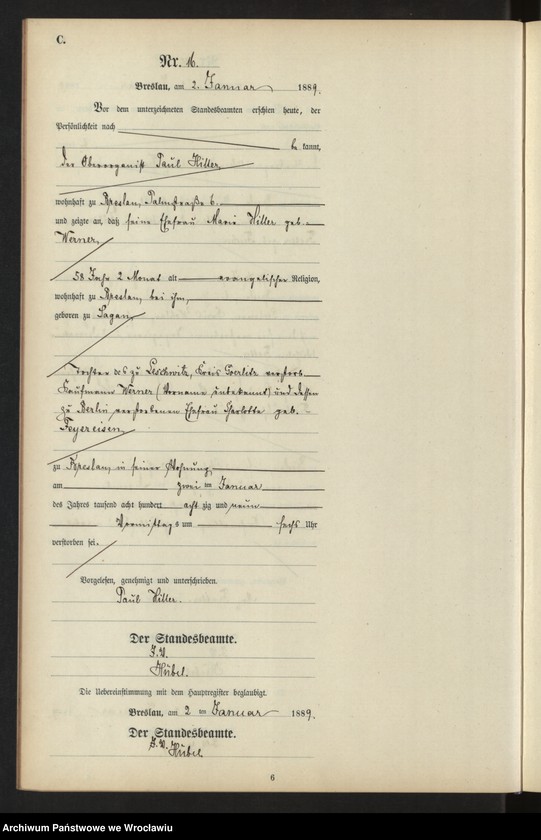 C.
Nr. 16.
Breslau, am 2. Januar 1889.
Vor dem unterzeichneten Standesbeamten erschien heute, der
Persönlichkeit nach
be kannt,
der Oberorganist Paul Hiller,
wohnhaft zu Breslau, Palmstraße 6.
und zeigte an, daß seine Ehefrau Marie Hiller geb.
Werner,
58 Jahr 2 Monat alt evangelischer Religion,
wohnhaft zu Breslau, bei ihm,
geboren zu Sagan,
Tochter des zu Leschwitz, Kreis Goerlitz verstorb.
Kaufmann Werner (Vorname unbekannt) und dessen
zu Berlin verstorbenen Ehefrau Charlotte geb.
Feyereisen,
zu Breslau, in seiner Wohnung,
am zwei ten Januar
des Jahres tausend acht hundert acht zig und neun
Vormittags um sechs Uhr
verstorben sei.
Vorgelesen, genehmigt und unterschrieben.
Paul Hiller.
Der Standesbeamte.
I. V.
Hübel.
Die Uebereinstimmung mit dem Hauptregister beglaubigt.
Breslau, am 2 ten Januar 1889.
Der Standesbeamte.
I. V. Hübel
6
Archiwum Państwowe we Wrocławiu